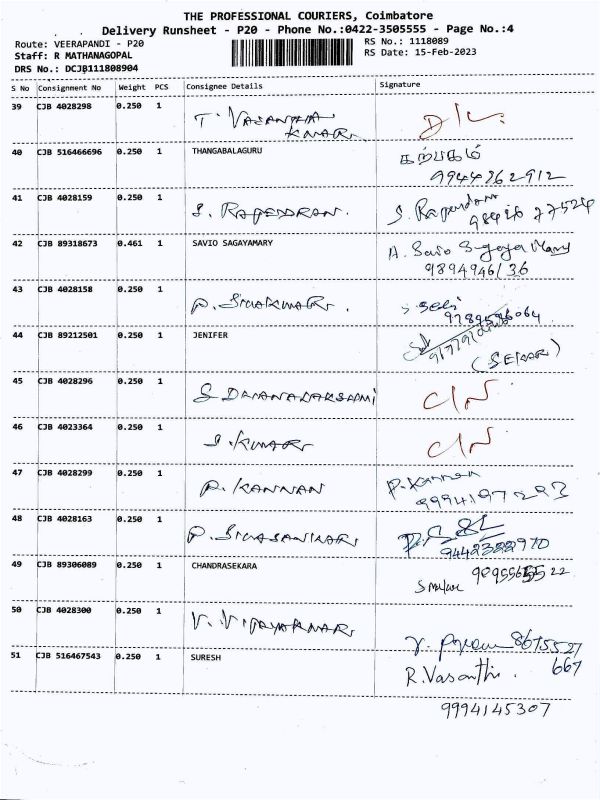 THE PROFESSIONAL COURIERS, Coimbatore
Delivery Runsheet - P20 - Phone No.:0422-3505555 - Page No.:4
Route: VEERAPANDI - P20
RS No.: 1118089
Staff: R MATHANAGOPAL
RS Date: 15-Feb-2023
DRS No.: DCJB111808904
S No Consignment No Weight PCS Consignee Details Signature
39 CJB 4028298 0.250 1 T. VASANTHA
KUMAR
40 CJB 516466696 0.250 1 THANGABALAGURU கற்பகம்
9944262912
41 CJB 4028159 0.250 1 S. RAJENDRAN. S. Rajendran
42 CJB 89318673 0.461 1 SAVIO SAGAYAMARY A. Savio Sagaya Mary
9894946136
43 CJB 4028158 0.250 1 P. SIVAKUMAR.
44 CJB 89212501 0.250 1 JENIFER
(SEKAR)
45 CJB 4028296 0.250 1 S DHANALAKSHMI C/N
46 CJB 4023364 0.250 1 S. KUMAR C/N
47 CJB 4028299 0.250 1 P. KANNAN P. Kannan
9994197293
48 CJB 4028163 0.250 1 P. SIVASANKAR
9442322970
49 CJB 89306089 0.250 1 CHANDRASEKARA
50 CJB 4028300 0.250 1 V. VIJAYAKUMAR
8675527
667
51 CJB 516467543 0.250 1 SURESH R. Vasanthi.
9994145307